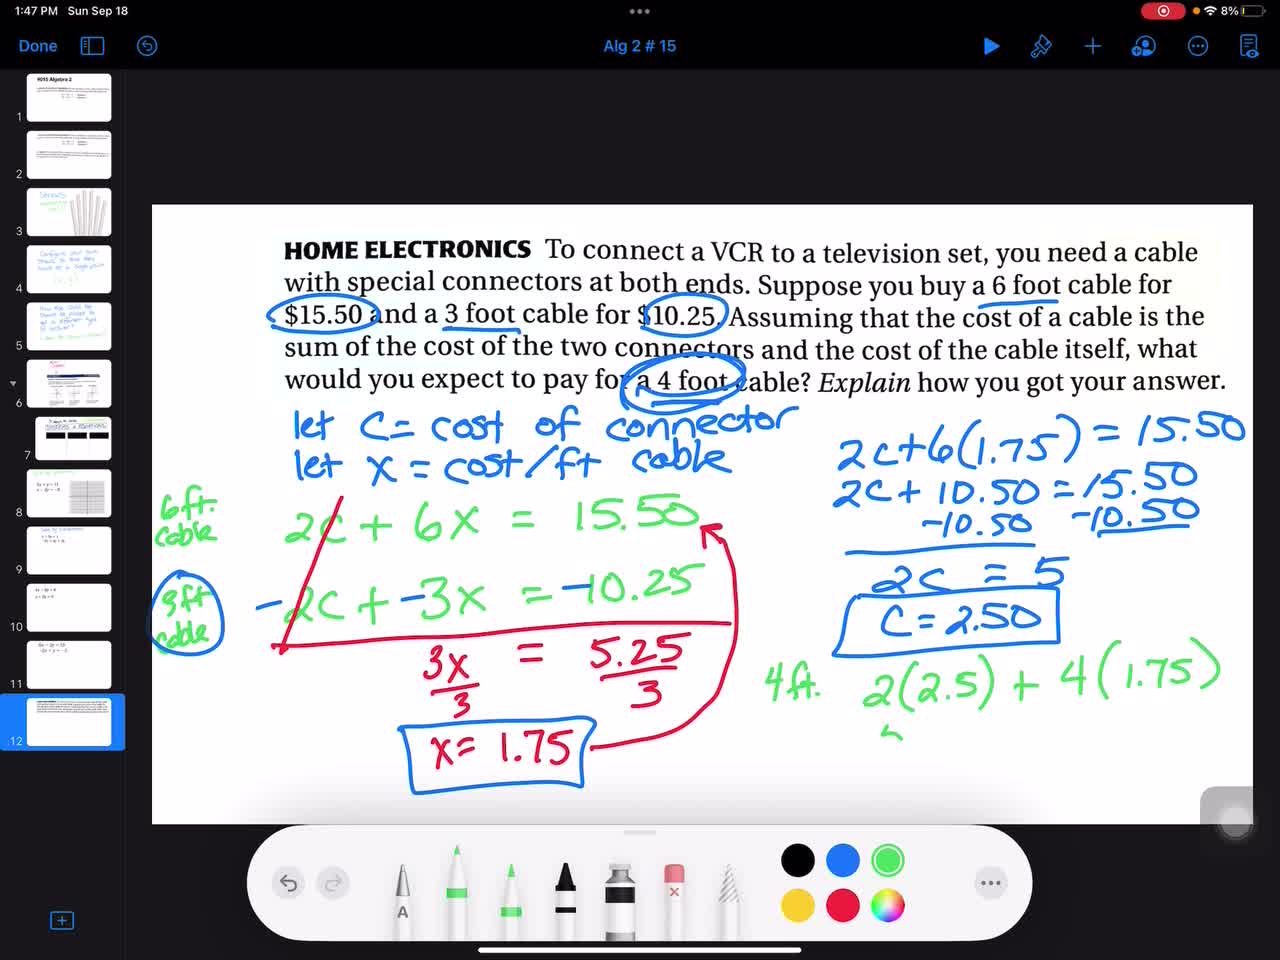 1:47 PM Sun Sep 18
8%
Done
Alg 2 # 15
HOME ELECTRONICS To connect a VCR to a television set, you need a cable
with special connectors at both ends. Suppose you buy a 6 foot cable for
$15.50 and a 3 foot cable for $10.25. Assuming that the cost of a cable is the
sum of the cost of the two connectors and the cost of the cable itself, what
would you expect to pay for a 4 foot cable? Explain how you got your answer.
let C = cost of connector
let x = cost/ft cable
6ft. cable
2C + 6x = 15.50
3ft cable
-2C + -3x = -10.25
3x = 5.25
3 3
x = 1.75
2C+6(1.75) = 15.50
2C + 10.50 = 15.50
-10.50 -10.50
2C = 5
C = 2.50
4ft. 2(2.5) + 4(1.75)
1
2
3
4
5
6
7
8
9
10
11
12
A